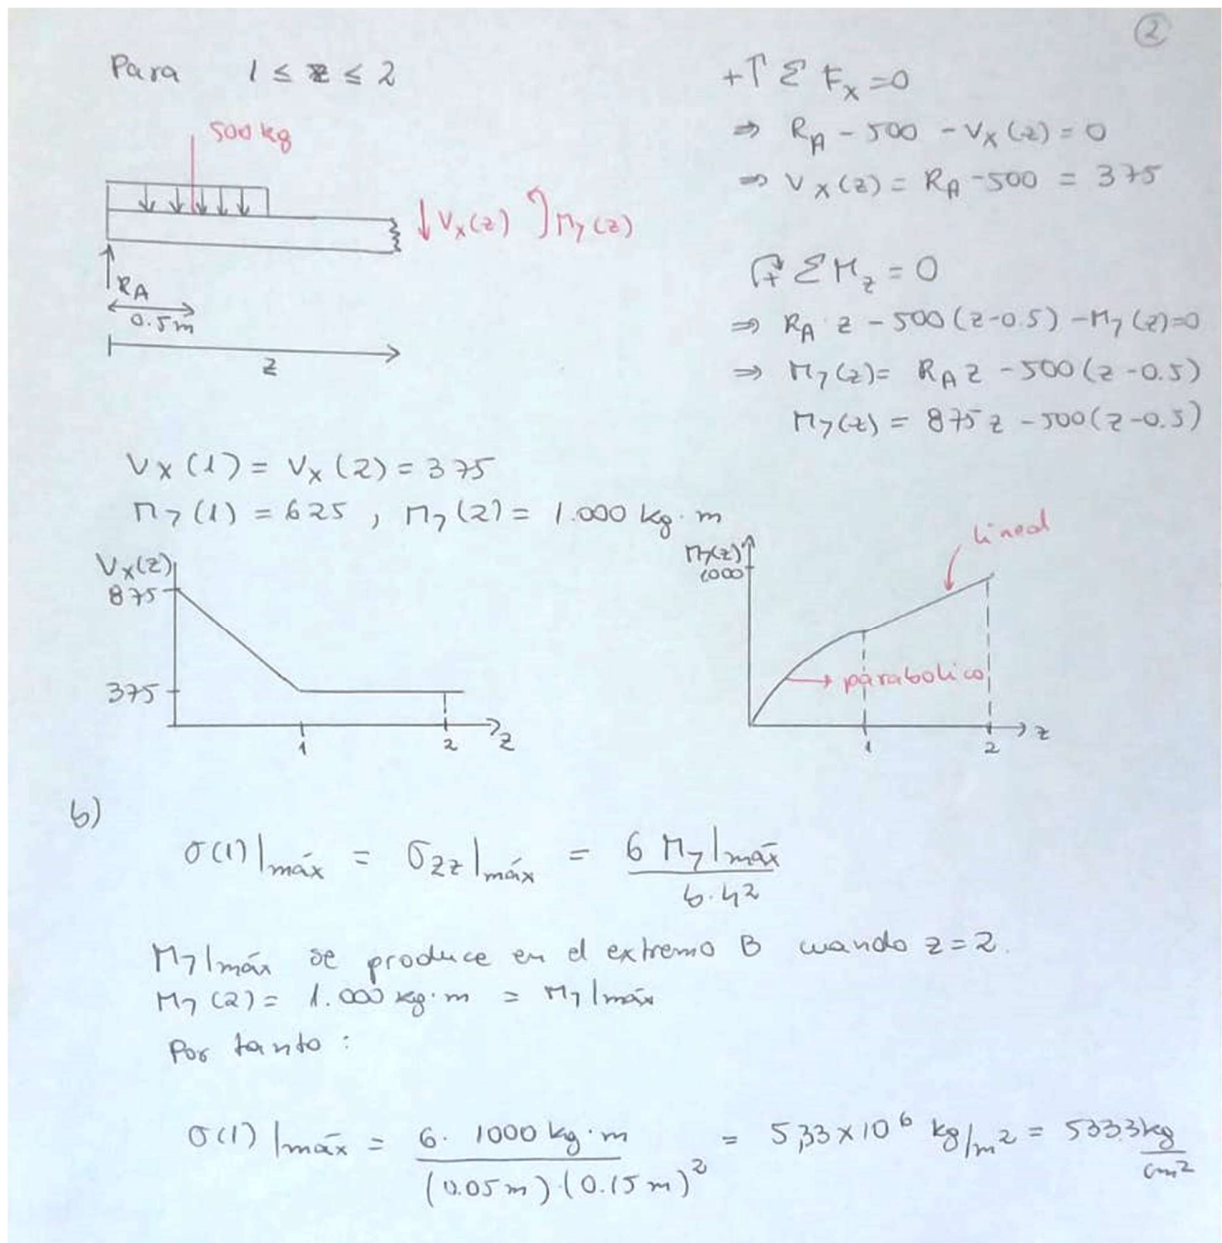 2
Para 1 ≤ z ≤ 2
500 kg
Vx(z) My(z)
RA
0.5m
z
+↑ Σ Fx = 0
⇒ RA - 500 - Vx(z) = 0
⇒ Vx(z) = RA - 500 = 375
+ Σ Mz = 0
⇒ RA · z - 500(z-0.5) - My(z) = 0
⇒ My(z) = RA z - 500(z-0.5)
My(z) = 875z - 500(z-0.5)
Vx(1) = Vx(2) = 375
My(1) = 625, My(2) = 1.000 kg·m
Vx(z)
875
375
1
2
z
My(z)
1000
lineal
parabolico
1
2
z
b)
σ(1)|máx = σzz|máx = 6 My|máx / b·h²
My|máx se produce en el extremo B cuando z=2.
My(2) = 1.000 kg·m = My|máx
Por tanto:
σ(1)|máx = 6· 1000 kg·m / (0.05m)·(0.15m)² = 5,33×10⁶ kg/m² = 533.3 kg/cm²